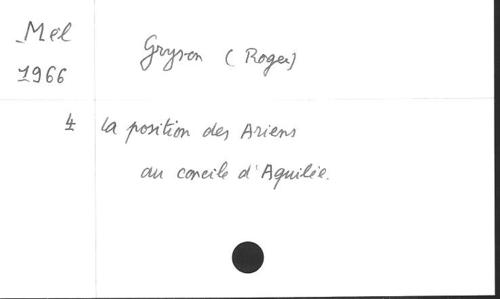 Mel
Gryson (Roger)
1966
4 La position des Ariens
au concile d'Aquilée.